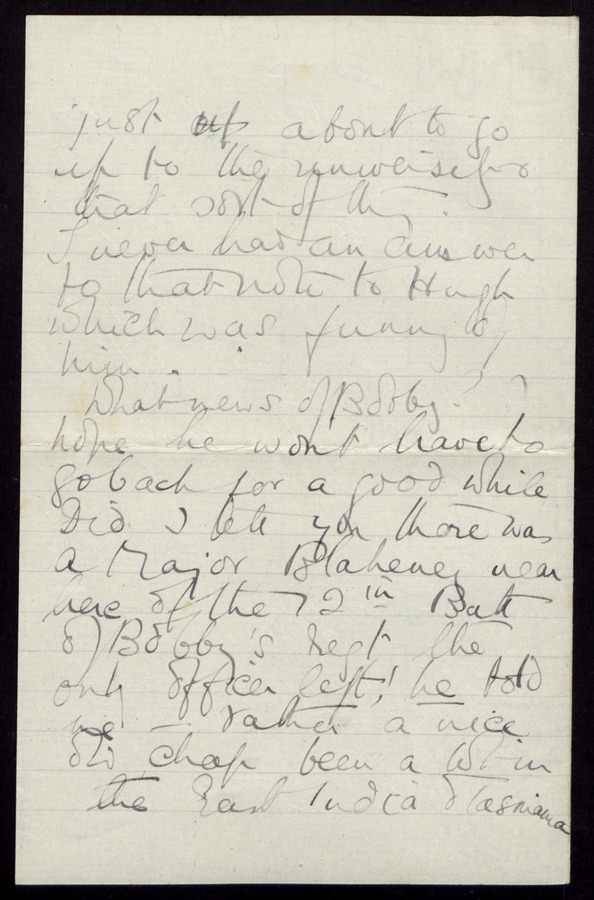 just up about to go
up to the universe for
that sort of thing.
I never had an answer
to that note to Hugh
which was funny of
him.
What news of Bobby? I
hope he wont have to
go back for a good while
Did I tell you there was
a Major Blakeney near
here of the 12th Batt
of Bobby's Regt the
only officer left! he told
me — rather a nice
old chap been a lot in
the East India & Tasmania